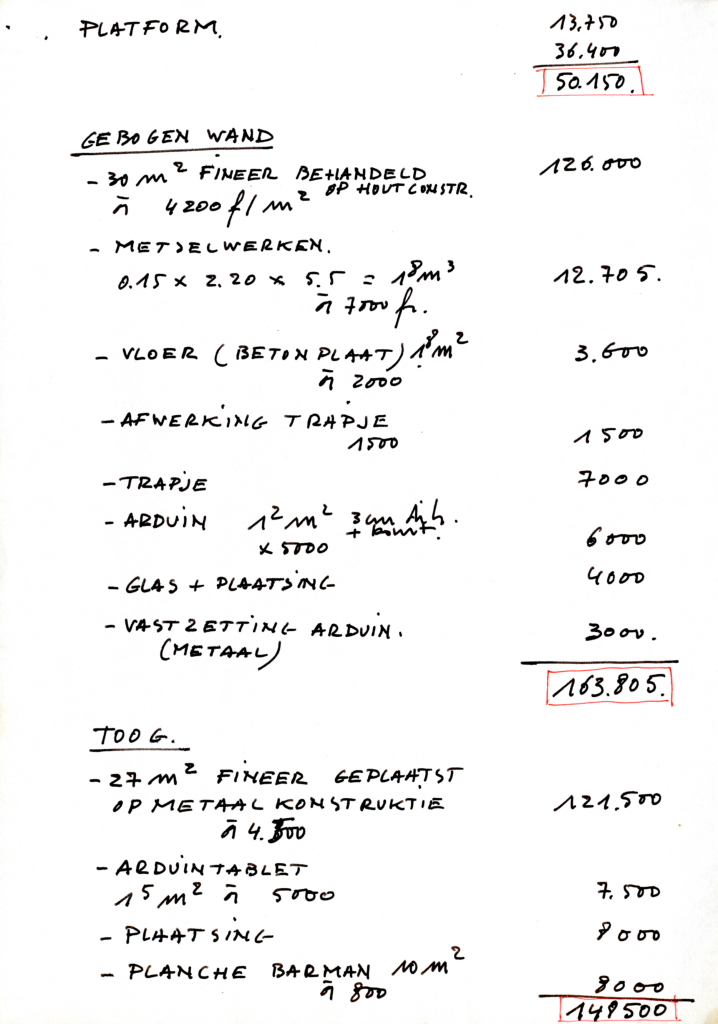 PLATFORM. 13.750
36.400
50.150.
GEBOGEN WAND
- 30 m² FINEER BEHANDELD 126.000
OP HOUTCONSTR.
à 4200 f/m²
- METSELWERKEN.
0.15 x 2.20 x 5.5 = 1⁸m³ 12.705.
à 7000 fr.
- VLOER (BETONPLAAT) 1⁸m² 3.600
à 2000
- AFWERKING TRAPJE
1500 1500
- TRAPJE 7000
- ARDUIN 1²m² 3cm
x 5000 6000
- GLAS + PLAATSING 4000
- VASTZETTING ARDUIN. 3000.
(METAAL)
163.805.
TOOG.
- 27 m² FINEER GEPLAATST
OP METAALKONSTRUKTIE 121.500
à 4.500
- ARDUINTABLET
1⁵m² à 5000 7.500
- PLAATSING 8000
- PLANCHE BARMAN 10 m²
à 800 8000
148500